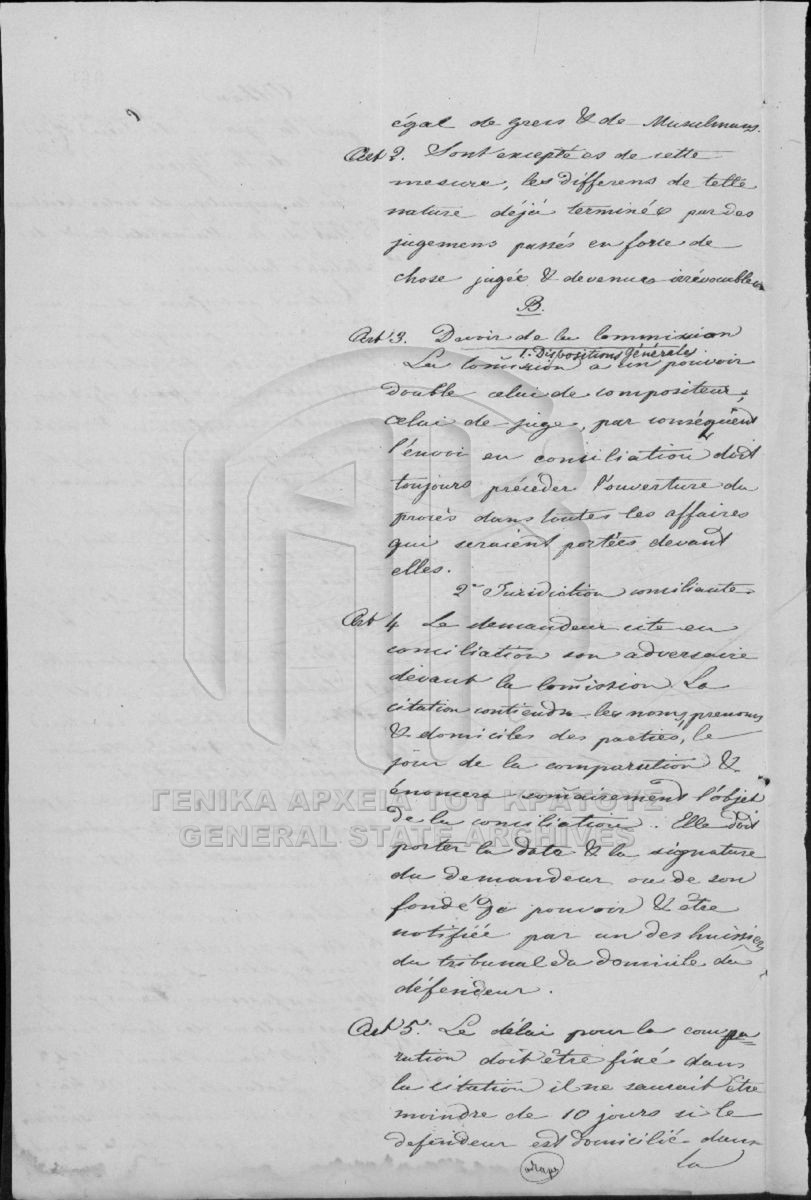 égal de grecs & de Musulmans.
Art 2. Sont excepté es de cette
mesure, les differens de telle
nature déjà terminés par des
jugemens passés en force de
chose jugée & devenues irrévocables
B.
Art 3. Devoir de la Commission
1. Dispositions générales
La Com̃ission a un pouvoir
double celui de compositeur,
celui de juge, par conséquent
l'envoi en conciliation doit
toujours précéder l'ouverture du
procès dans toutes les affaires
qui seraient portées devant
elles.
2° Juridiction conciliante.
Art 4 Le demandeur cite en
conciliation son adversaire
devant la Com̃ission. La
citation contiendra les noms, prenoms
& domiciles des parties, le
jour de la comparution &
énoncera som̃airement l'objet
de la conciliation. Elle doit
porter la date & la signature
du demandeur ou de son
fondé de pouvoir & être
notifiée par un des huissiers
du tribunal du domicile du
défendeur.
Art 5. Le délai pour la compa
ration doit être fixé dans
la citation il ne saurait être
moindre de 10 jours si le
defendeur est domicilié dans
la
ΓΕΝΙΚΑ ΑΡΧΕΙΑ ΤΟΥ ΚΡΑΤΟΥΣ
GENERAL STATE ARCHIVES